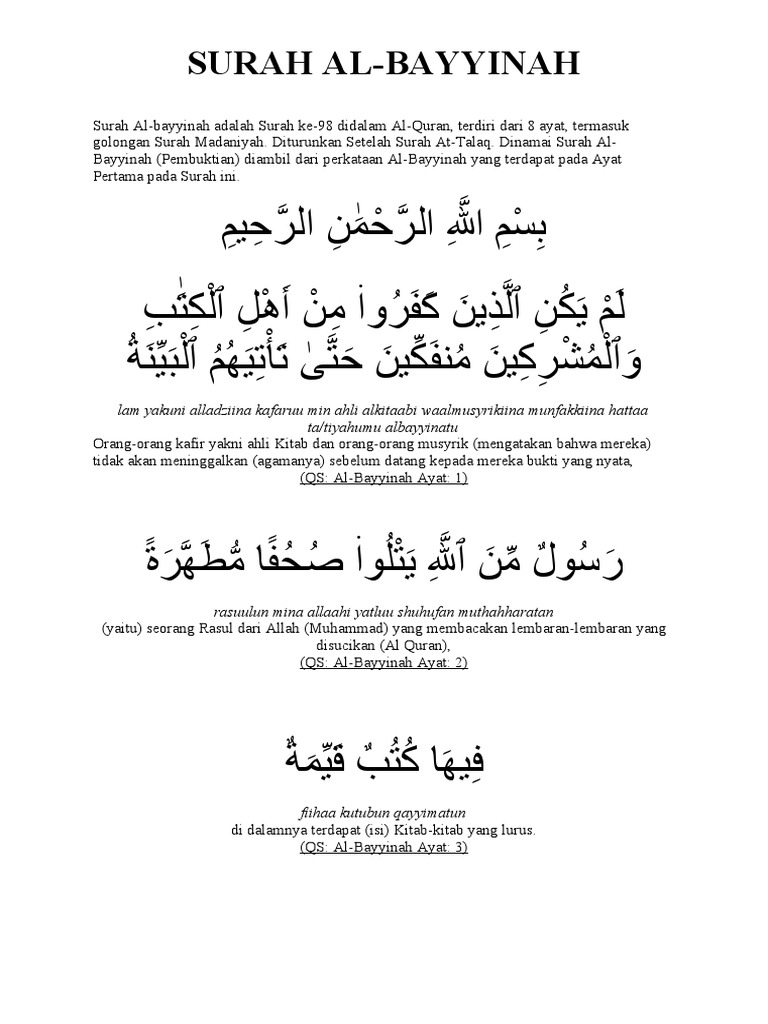 SURAH AL-BAYYINAH
Surah Al-bayyinah adalah Surah ke-98 didalam Al-Quran, terdiri dari 8 ayat, termasuk
golongan Surah Madaniyah. Diturunkan Setelah Surah At-Talaq. Dinamai Surah Al-
Bayyinah (Pembuktian) diambil dari perkataan Al-Bayyinah yang terdapat pada Ayat
Pertama pada Surah ini.
بِسْمِ اللَّهِ الرَّحْمَٰنِ الرَّحِيمِ
لَمْ يَكُنِ ٱلَّذِينَ كَفَرُوا۟ مِنْ أَهْلِ ٱلْكِتَٰبِ
وَٱلْمُشْرِكِينَ مُنفَكِّينَ حَتَّىٰ تَأْتِيَهُمُ ٱلْبَيِّنَةُ
lam yakuni alladziina kafaruu min ahli alkitaabi waalmusyrikiina munfakkiina hattaa
ta/tiyahumu albayyinatu
Orang-orang kafir yakni ahli Kitab dan orang-orang musyrik (mengatakan bahwa mereka)
tidak akan meninggalkan (agamanya) sebelum datang kepada mereka bukti yang nyata,
(QS: Al-Bayyinah Ayat: 1)
رَسُولٌ مِّنَ ٱللَّهِ يَتْلُوا۟ صُحُفًا مُّطَهَّرَةً
rasuulun mina allaahi yatluu shuhufan muthahharatan
(yaitu) seorang Rasul dari Allah (Muhammad) yang membacakan lembaran-lembaran yang
disucikan (Al Quran),
(QS: Al-Bayyinah Ayat: 2)
فِيهَا كُتُبٌ قَيِّمَةٌ
fiihaa kutubun qayyimatun
di dalamnya terdapat (isi) Kitab-kitab yang lurus.
(QS: Al-Bayyinah Ayat: 3)